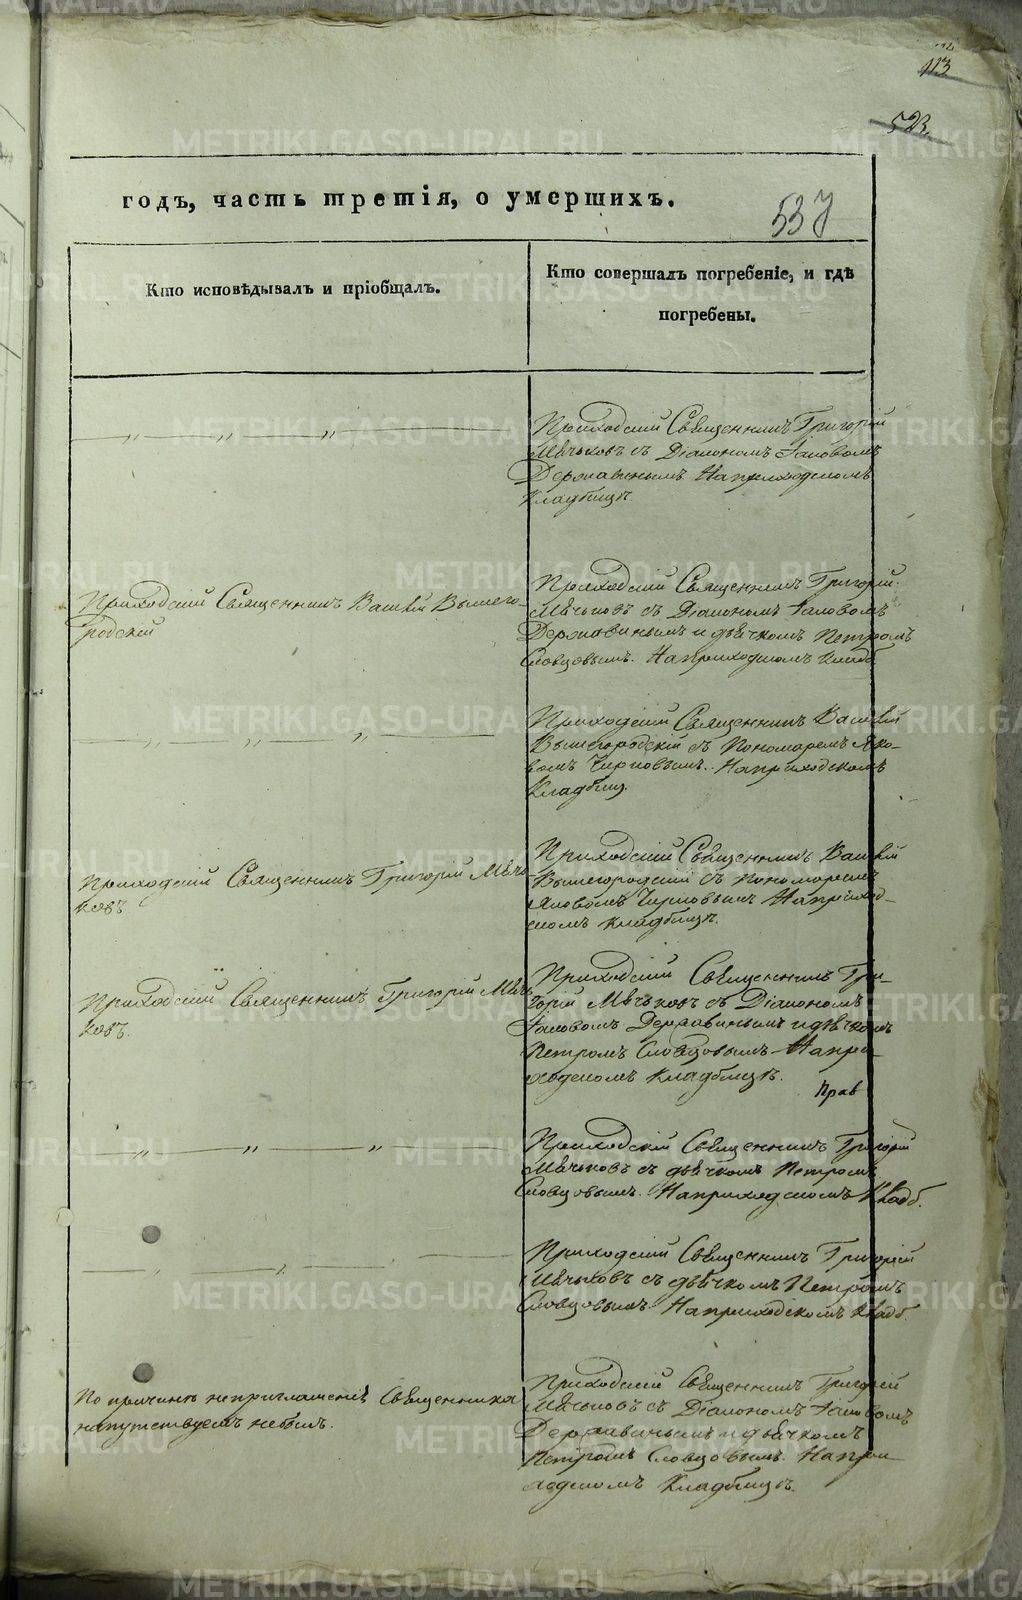 113
523.
537
годъ, часть третія, о умершихъ.
Кто исповѣдывалъ и пріобщалъ.
Кто совершалъ погребеніе, и гдѣ
погребены.
— „ — „ — „ —
Приходскій Священникъ Григорій
Мѣчьковъ съ Діакономъ Іаковомъ
Державинымъ На приходскомъ
Кладбищѣ.
Приходскій Священникъ Василій Вышего-
родскій
Приходскій Священникъ Григорій
Мѣчьковъ съ Діакономъ Іаковомъ
Державинымъ и дьячкомъ Петромъ
Словцовымъ. На приходскомъ кладб.
— „ — „ — „ —
Приходскій Священникъ Василій
Вышегородскій съ Пономаремъ Яко-
вомъ Чирковымъ. На приходскомъ
Кладбищ.
Приходскій Священникъ Григорій Мѣчь
ковъ.
Приходскій Священникъ Василій
Вышегородскій съ Пономаремъ
Яковомъ Чирковымъ На приход-
скомъ кладбищѣ.
Приходскій Священникъ Григорій Мѣчь
ковъ.
Приходскій Священникъ Гри-
горій Мѣчьковъ съ Діакономъ
Іаковомъ Державинымъ и дьячкомъ
Петромъ Словцовымъ На при-
ходскомъ кладбищѣ.
Прав
— „ — „ — „ —
Приходскій Священникъ Григорій
Мѣчьковъ съ дьячкомъ Петромъ
Словцовымъ. На приходскомъ Кладб.
— „ — „ — „ —
Приходскій Священникъ Григорій
Мѣчьковъ съ дьячкомъ Петромъ
Словцовымъ. На приходскомъ Кладб.
По причинѣ неприглашенія Священника
напутствуемъ небылъ.
Приходскій Священникъ Григорій
Мѣчьковъ съ Діакономъ Іаковомъ
Державинымъ и дьячкомъ
Петромъ Словцовымъ. На при
ходскомъ Кладбищѣ.
METRIKI.GASO-URAL.RU